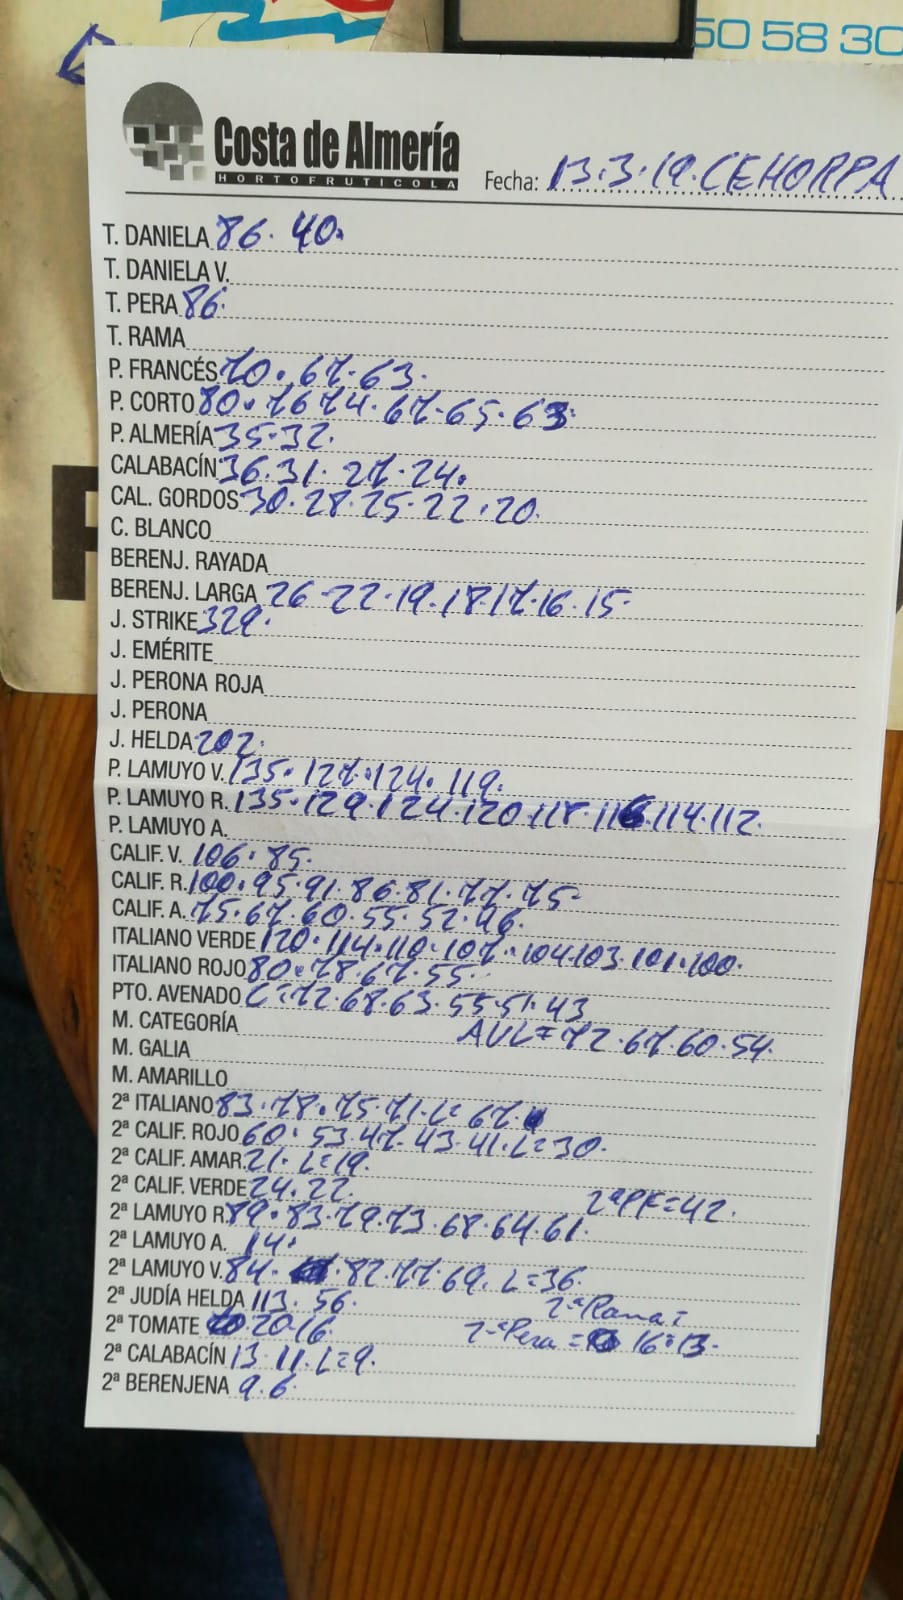 50 58 30
Costa de Almería
HORTOFRUTICOLA
Fecha: 13.3.19. CEHORPA
T. DANIELA 86. 40.
T. DANIELA V.
T. PERA 86.
T. RAMA
P. FRANCÉS 70. 67. 63.
P. CORTO 80. 76 74. 67. 65. 63.
P. ALMERÍA 35. 32.
CALABACÍN 36. 31. 27. 24.
CAL. GORDOS 30. 28. 25. 22. 20.
C. BLANCO
BERENJ. RAYADA
BERENJ. LARGA 26. 22. 19. 18. 17. 16. 15.
J. STRIKE 329.
J. EMÉRITE
J. PERONA ROJA
J. PERONA
J. HELDA 202.
P. LAMUYO V. 135. 127. 124. 119.
P. LAMUYO R. 135. 129. 124. 120. 118. 116. 114. 112.
P. LAMUYO A.
CALIF. V. 106. 85.
CALIF. R. 100. 95. 91. 86. 81. 77. 75.
CALIF. A. 75. 67. 60. 55. 52. 46.
ITALIANO VERDE 120. 114. 110. 107. 104. 103. 101. 100.
ITALIANO ROJO 80. 78. 67. 55.
PTO. AVENADO C=72. 68. 63. 55. 51. 43
M. CATEGORÍA AVL=72. 67. 60. 54.
M. GALIA
M. AMARILLO
2ª ITALIANO 83. 78. 75. 71. L=67.
2ª CALIF. ROJO 60. 53. 47. 43. 41. L=30.
2ª CALIF. AMAR. 21. L=19.
2ª CALIF. VERDE 24. 22. 2ªPF=42.
2ª LAMUYO R. 89. 83. 79. 73. 68. 64. 61.
2ª LAMUYO A. 14.
2ª LAMUYO V. 84. 82. 77. 69. L=36.
2ª JUDÍA HELDA 113. 56. 2ªRama=
2ª TOMATE 20. 16. 2ªPera = 16. 13.
2ª CALABACÍN 13. 11. L=9.
2ª BERENJENA 9. 6.